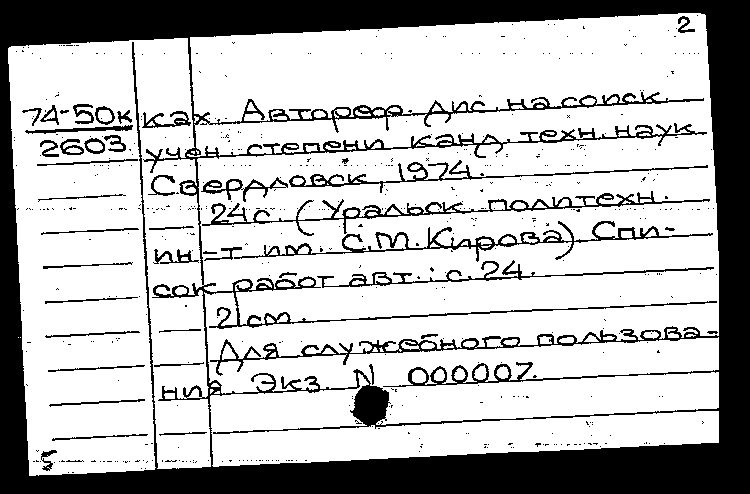 2
74-50к ках. Автореф. дис. на соиск.
2603 учен. степени канд. техн. наук
Свердловск, 1974.
24с. (Уральск. политехн.
ин-т им. С.М. Кирова) Спи-
сок работ авт.: с. 24.
21см.
Для служебного пользова-
ния. Экз. N 000007.
5